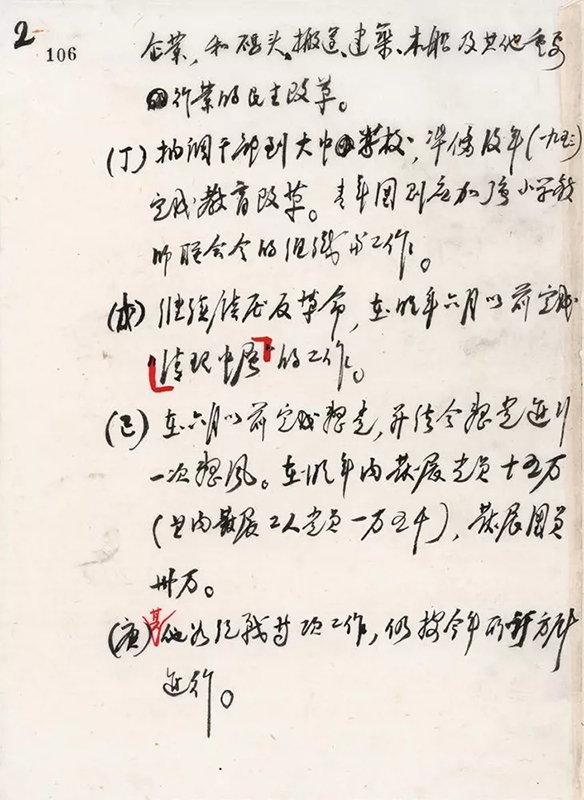 2
106
企業,和碼头、搬运、建築、木船及其他重要
行業的民主改革。
(丁)抽調干部到大中学校,準備後年(一九五三)
完成教育改革。青年团則应加强小学教
师联合会的组織与工作。
(戊)继续镇压反革命,在明年六月以前完成
“清理中层”的工作。
(己)在六月以前完成整党,并结合整党进行
一次整风。在明年内發展党员十五万
(内發展工人党员一万五千),發展团员
卅万。
(庚)其他如统战等项工作,仍按今年的方针
进行。